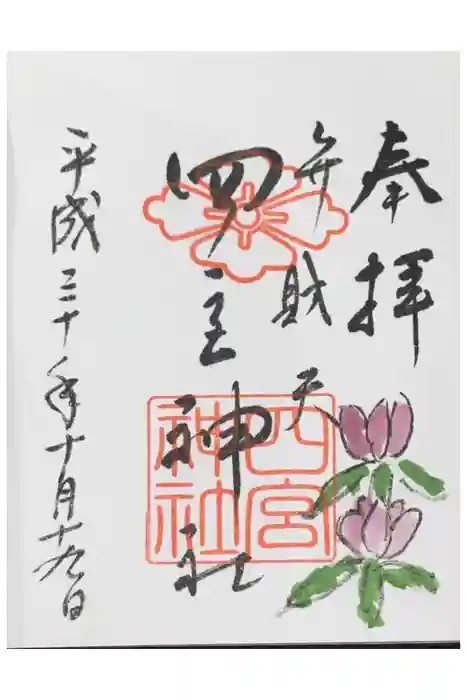 奉拝
弁財天
四宮神社
四宮
神社
平成三十年十月十九日